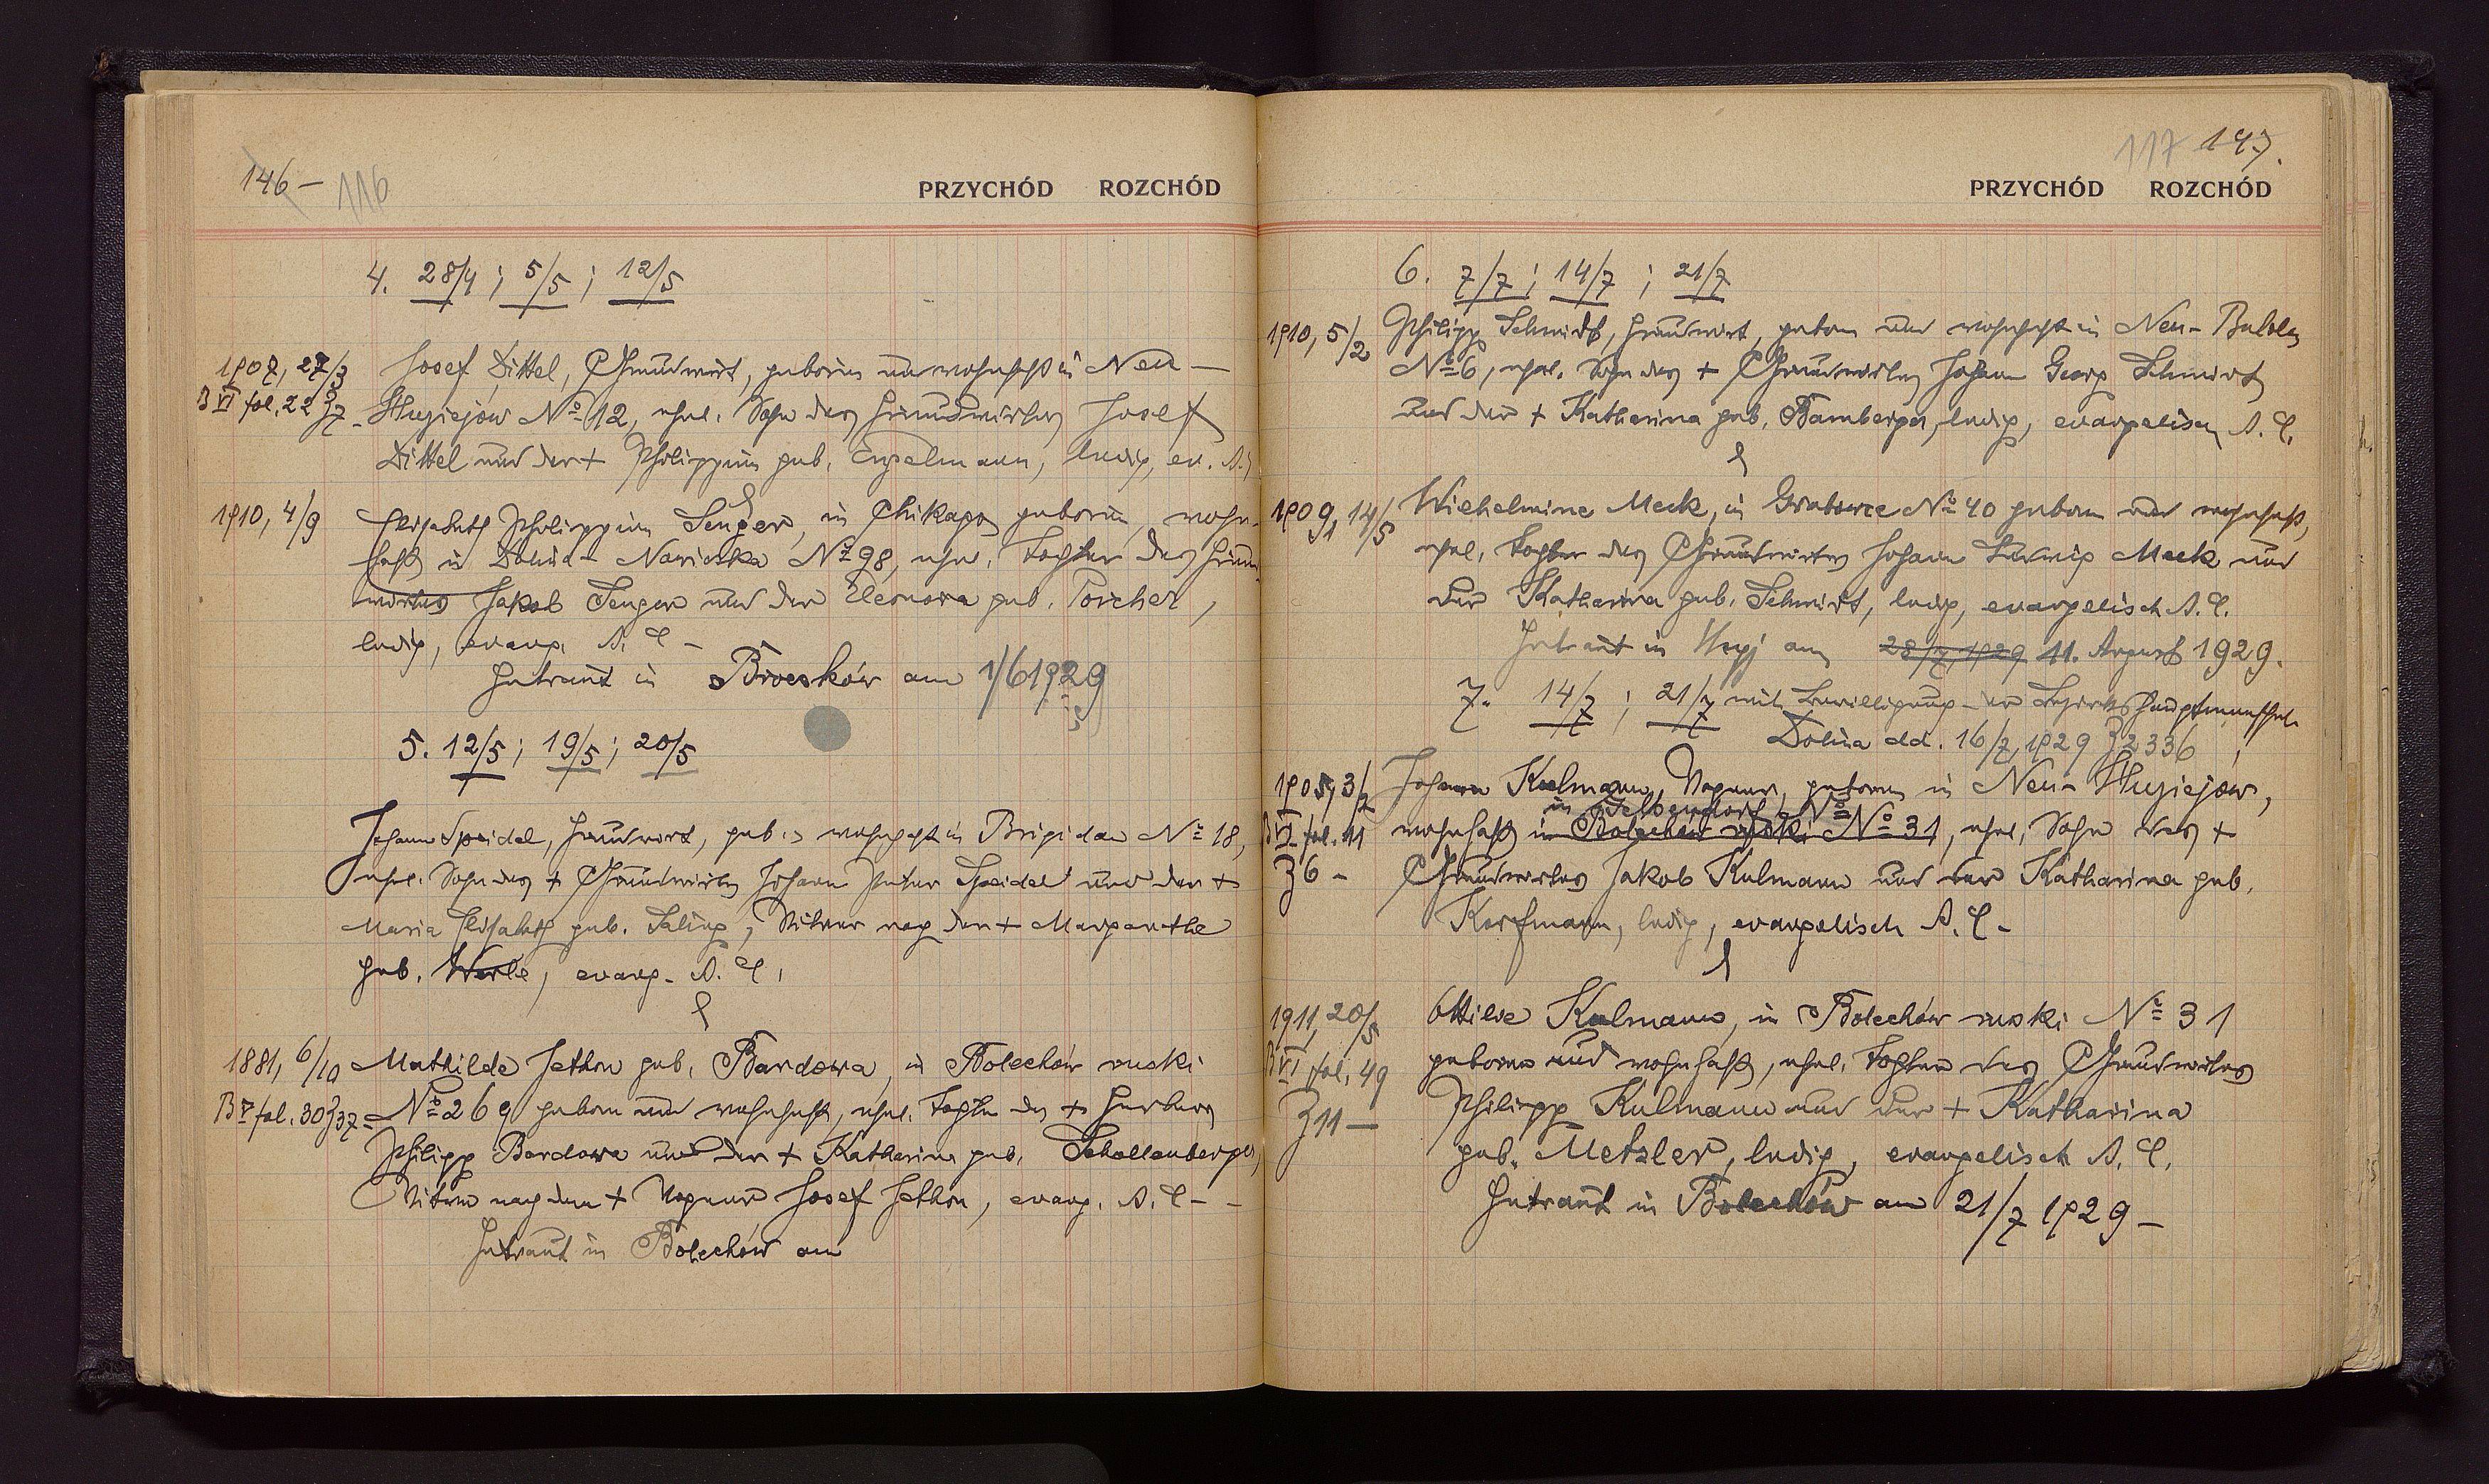 146 — 116
PRZYCHÓD ROZCHÓD
4. 28/4 ; 5/5 ; 12/5
1907, 27/3 Josef Dittel, Grundwirt, geboren und wohnhaft in Neu –
B VI fol. 22 Z 7 – Hluziejów No 12, ehel. Sohn des Grundwirtes Josef
Dittel und der + Philippine geb. Engelmann, ledig, ev. A.
&
1910, 4/9 Elisabeth Philippine Senger, in Chikago geboren, wohn-
haft in Dolina – Nowiczka No 98, ehel. Tochter des Grund
wirtes Jakob Senger und der Eleonora geb. Porcher,
ledig, evang. A. C –
Getraut in Broczków am 1/6 1929
5. 12/5 ; 19/5 ; 20/5
Johann Speidel, Grundwirt, geb. u. wohnhaft in Brigidau No 18,
ehel. Sohn des + Grundwirtes Johann Peter Speidel und der +
Maria Elisabeth geb. Saling, Witwer nach der + Margarethe
geb. Werle, evang. A. C.
&
1881, 6/10 Mathilde Jethon geb. Bardowa, in Bolechów ruski
B V fol. 30 Z 37 – No 269 geboren und wohnhaft, ehel. Tochter des + Gerbers
Philipp Bardowa und der + Katharina geb. Schollenberger,
Witwe nach dem + Wagner Josef Jethon, evang. A. C –
Getraut in Bolechów am
117 147.
PRZYCHÓD ROZCHÓD
6. 7/7 ; 14/7 ; 21/7
1910, 5/2 Philipp Schmidt, Grundwirt, geboren und wohnhaft in Neu-
No 6, ehel. Sohn des + Grundwirtes Johann Georg Schmidt
und der + Katharina geb. Bamberger, ledig, evangelisch A. C.
&
1909, 14/5 Wilhelmine Meck, in Grabowce No 40 geboren und wohnhaft,
ehel. Tochter des Grundwirtes Johann Ludwig Meck und
der Katharina geb. Schmidt, ledig, evangelisch A. C.
Getraut in am 28/7 1929 11. August 1929.
7. 14/7 ; 21/7 mit Bewilligung der Bezirkshauptmannschaft
Dolina dd. 16/7 1929 Z 2336
1905, 3/2 Johann Kulmann, Wagner, geboren in Neu-Hluziejów,
in Gelsendorf No
B VI fol. 11 wohnhaft in Bolechów ruski No 31, ehel. Sohn des +
Z 6 – Grundwirtes Jakob Kulmann und der Katharina geb.
Korfmann, ledig, evangelisch A. C –
&
1911, 20/5 Ottilie Kulmann, in Bolechów ruski No 31
B VI fol. 49 geboren und wohnhaft, ehel. Tochter des Grundwirtes
Z 11 — Philipp Kulmann und der + Katharina
geb. Metzler, ledig, evangelisch A. C.
Getraut in Bolechów am 21/7 1929 –